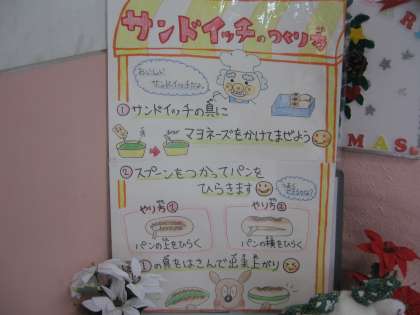 サンドイッチのつくり方
おいしい
サンドイッチだよ。
①サンドイッチの具に
マヨネーズをかけてまぜよう
②スプーンをつかってパンを
ひらきます
やり方①
やり方②
パンの上をひらく
パンの横をひらく
①の具をはさんで出来上がり
MAS